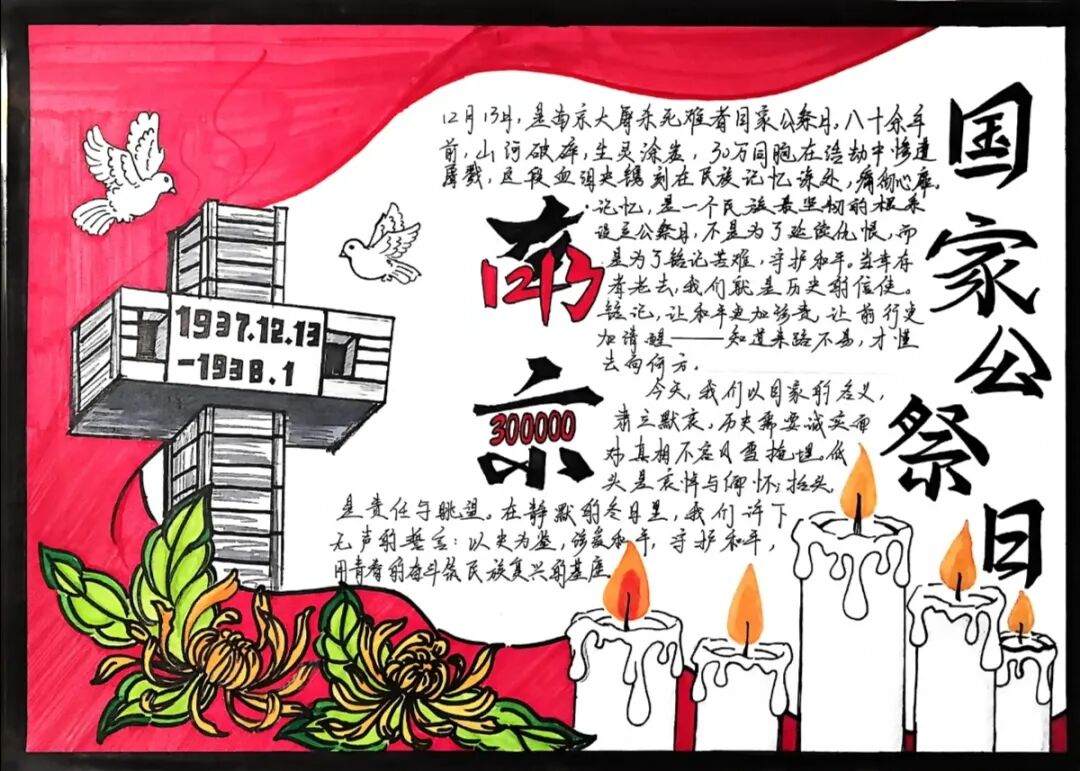 国家公祭日
12月13日,是南京大屠杀死难者国家公祭日,八十余年
前,山河破碎,生灵涂炭,30万同胞在浩劫中惨遭
屠戮,这段血泪史镌刻在民族记忆深处,痛彻心扉。
记忆,是一个民族最坚韧的根系
设立公祭日,不是为了延续仇恨,而
是为了铭记苦难,守护和平。当幸存
者老去,我们就是历史的信使。
铭记,让和平更加珍贵,让前行更
加清醒——知道来路不易,才懂
去向何方。
今天,我们以国家的名义,
肃立默哀,历史需要诚实面
对真相不容风雪掩埋。低
头是哀悼与缅怀;抬头
是责任与眺望。在静默的冬日里,我们许下
无声的誓言:以史为鉴,珍爱和平,守护和平,
用青春的奋斗筑民族复兴的基座。
南
1213
京
300000
1937.12.13
-1938.1